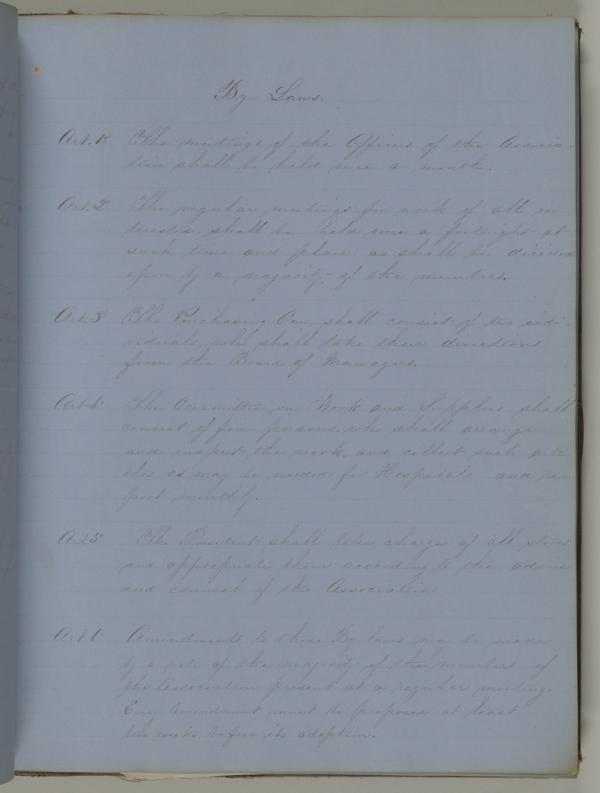 By Laws.
Art. 1st The meetings of the Officers of the Associa-
tion shall be held once a month.
Art. 2d The regular meetings for work of all in
terested, shall be held once a fortnight at
such time and place, as shall be decided
upon by a majority of the members.
Art. 3d The Purchasing Com. shall consist of two indi-
viduals, who shall take their directions
from the Board of Managers.
Art 4th The Committee on Work and Supplies shall
consist of four persons, who shall arrange
and inspect the work, and collect such arti
cles as may be needed for Hospitals and re-
port monthly.
Art. 5th The President shall take charge of all stores
and appropriate them according to the advice
and counsel of the Association
Art 6th Amendments to these By laws may be made
by a vote of the majority of the members of
the Association present at a regular meeting.
Every Amendment must be proposed at least
two weeks before its adoption.